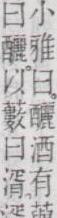 小雅曰。釃酒有藇
曰釃。以藪曰湑。湑